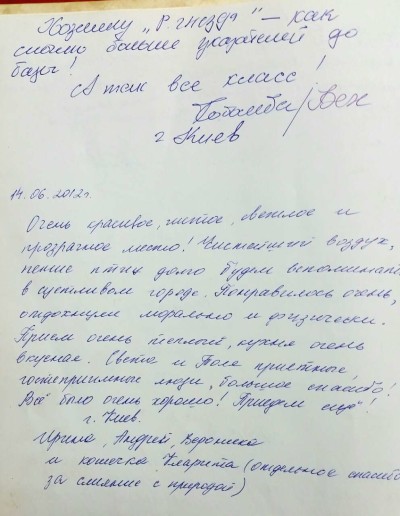 Хозяину „Р. гнездо" – как
можно больше указателей до
базы!
А так все класс!
г. Киев
14.06.2012г.
Очень красивое, чистое, светлое и
прозрачное место! Чистейший воздух,
пение птиц долго будем вспоминать
в суетливом городе. Понравилось очень,
отдохнули морально и физически.
Прием очень теплый, кухня очень
вкусная. Света и Толя приятные,
гостеприимные люди, большое спасибо!
Всё было очень хорошо! Приедем ещё!
г. Киев.
Ирина, Андрей, Вероника
и кошечка Кларита (отдельное спасибо
за слияние с природой)